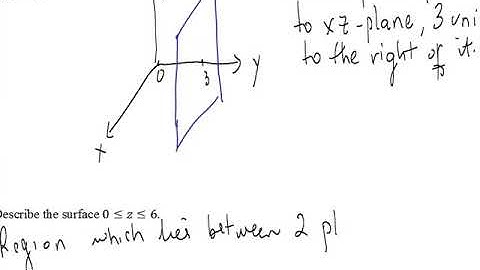 to xz-plane, 3 uni
to the right of it.
0
3
y
x
Describe the surface 0 ≤ z ≤ 6.
Region which lies between 2 pl